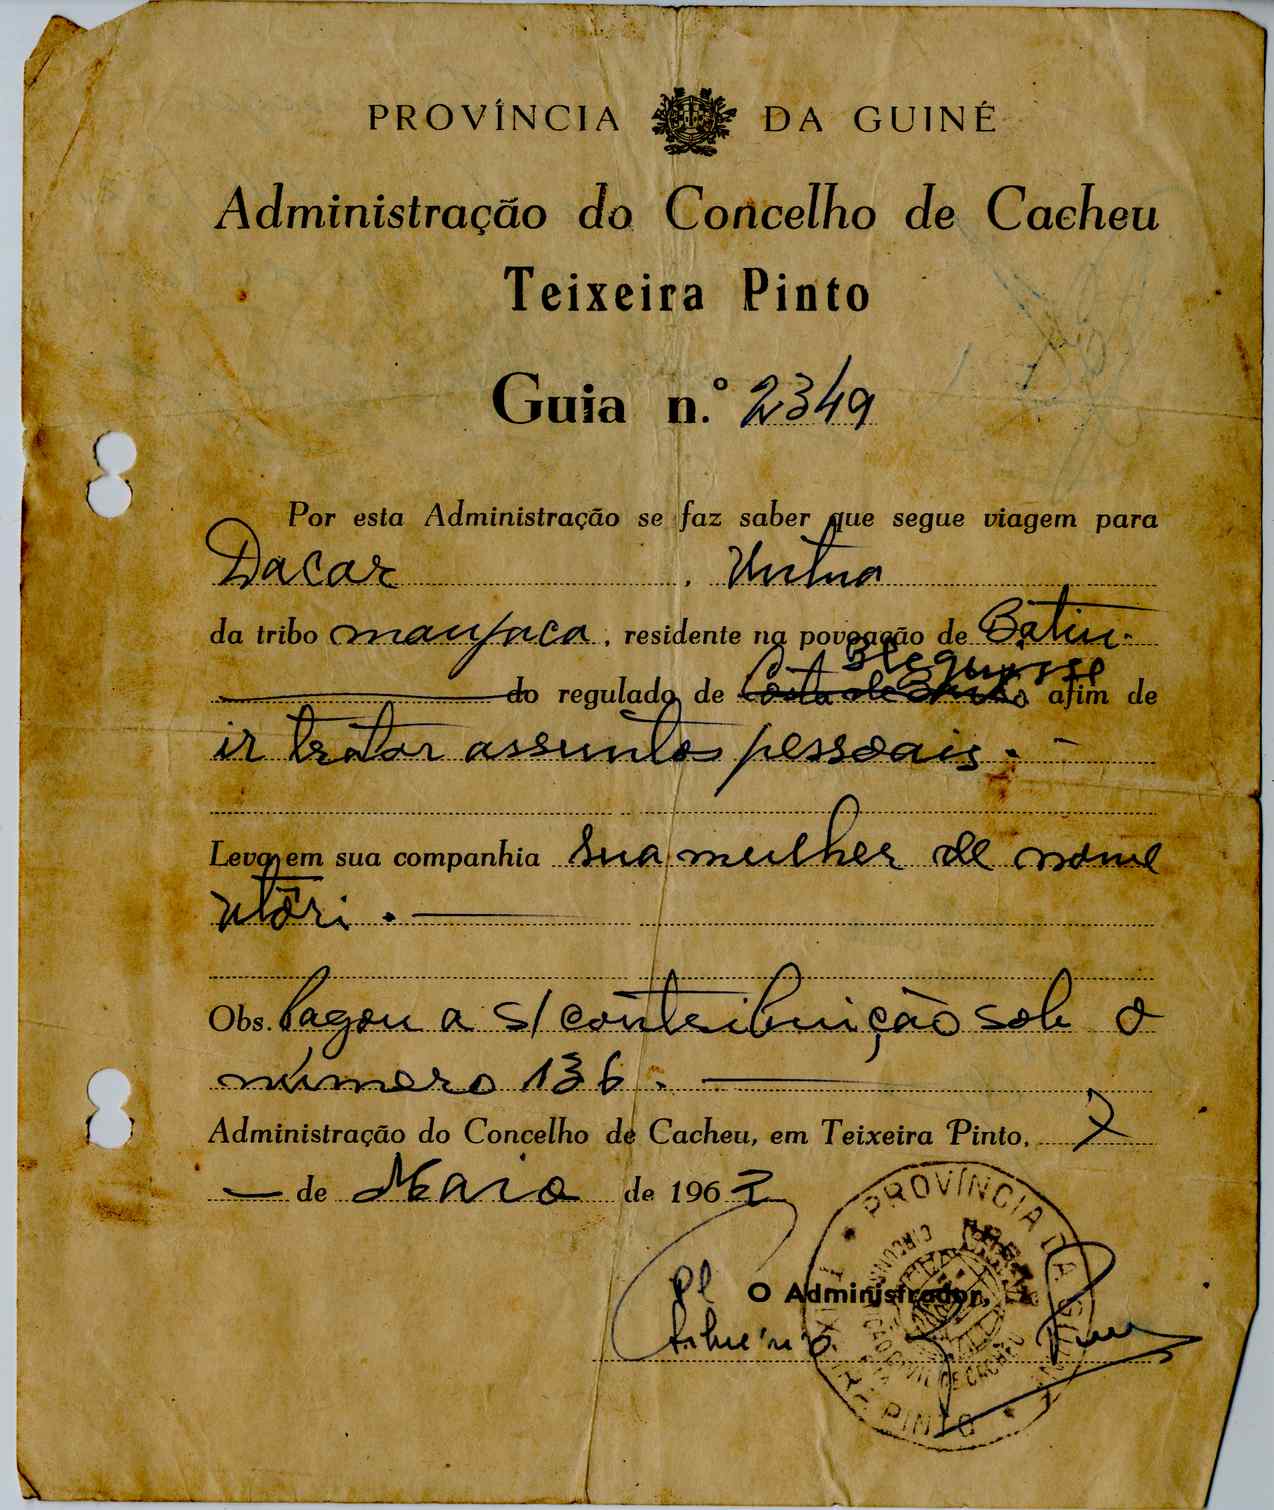 PROVÍNCIA DA GUINÉ
Administração do Concelho de Cacheu
Teixeira Pinto
Guia n.º 2349
Por esta Administração se faz saber que segue viagem para
Dacar ,
da tribo manjaca, residente na povoação de Batiu-
do regulado de afim de
ir tratar assuntos pessoais. -
Leva em sua companhia sua mulher de nome
Utôri.
Obs. Pagou a s/ contribuição sob o
número 136.
Administração do Concelho de Cacheu, em Teixeira Pinto, 2
de Maio de 1962
PROVÍNCIA DA GUINÉ
TEIXEIRA PINTO
O Administrador,